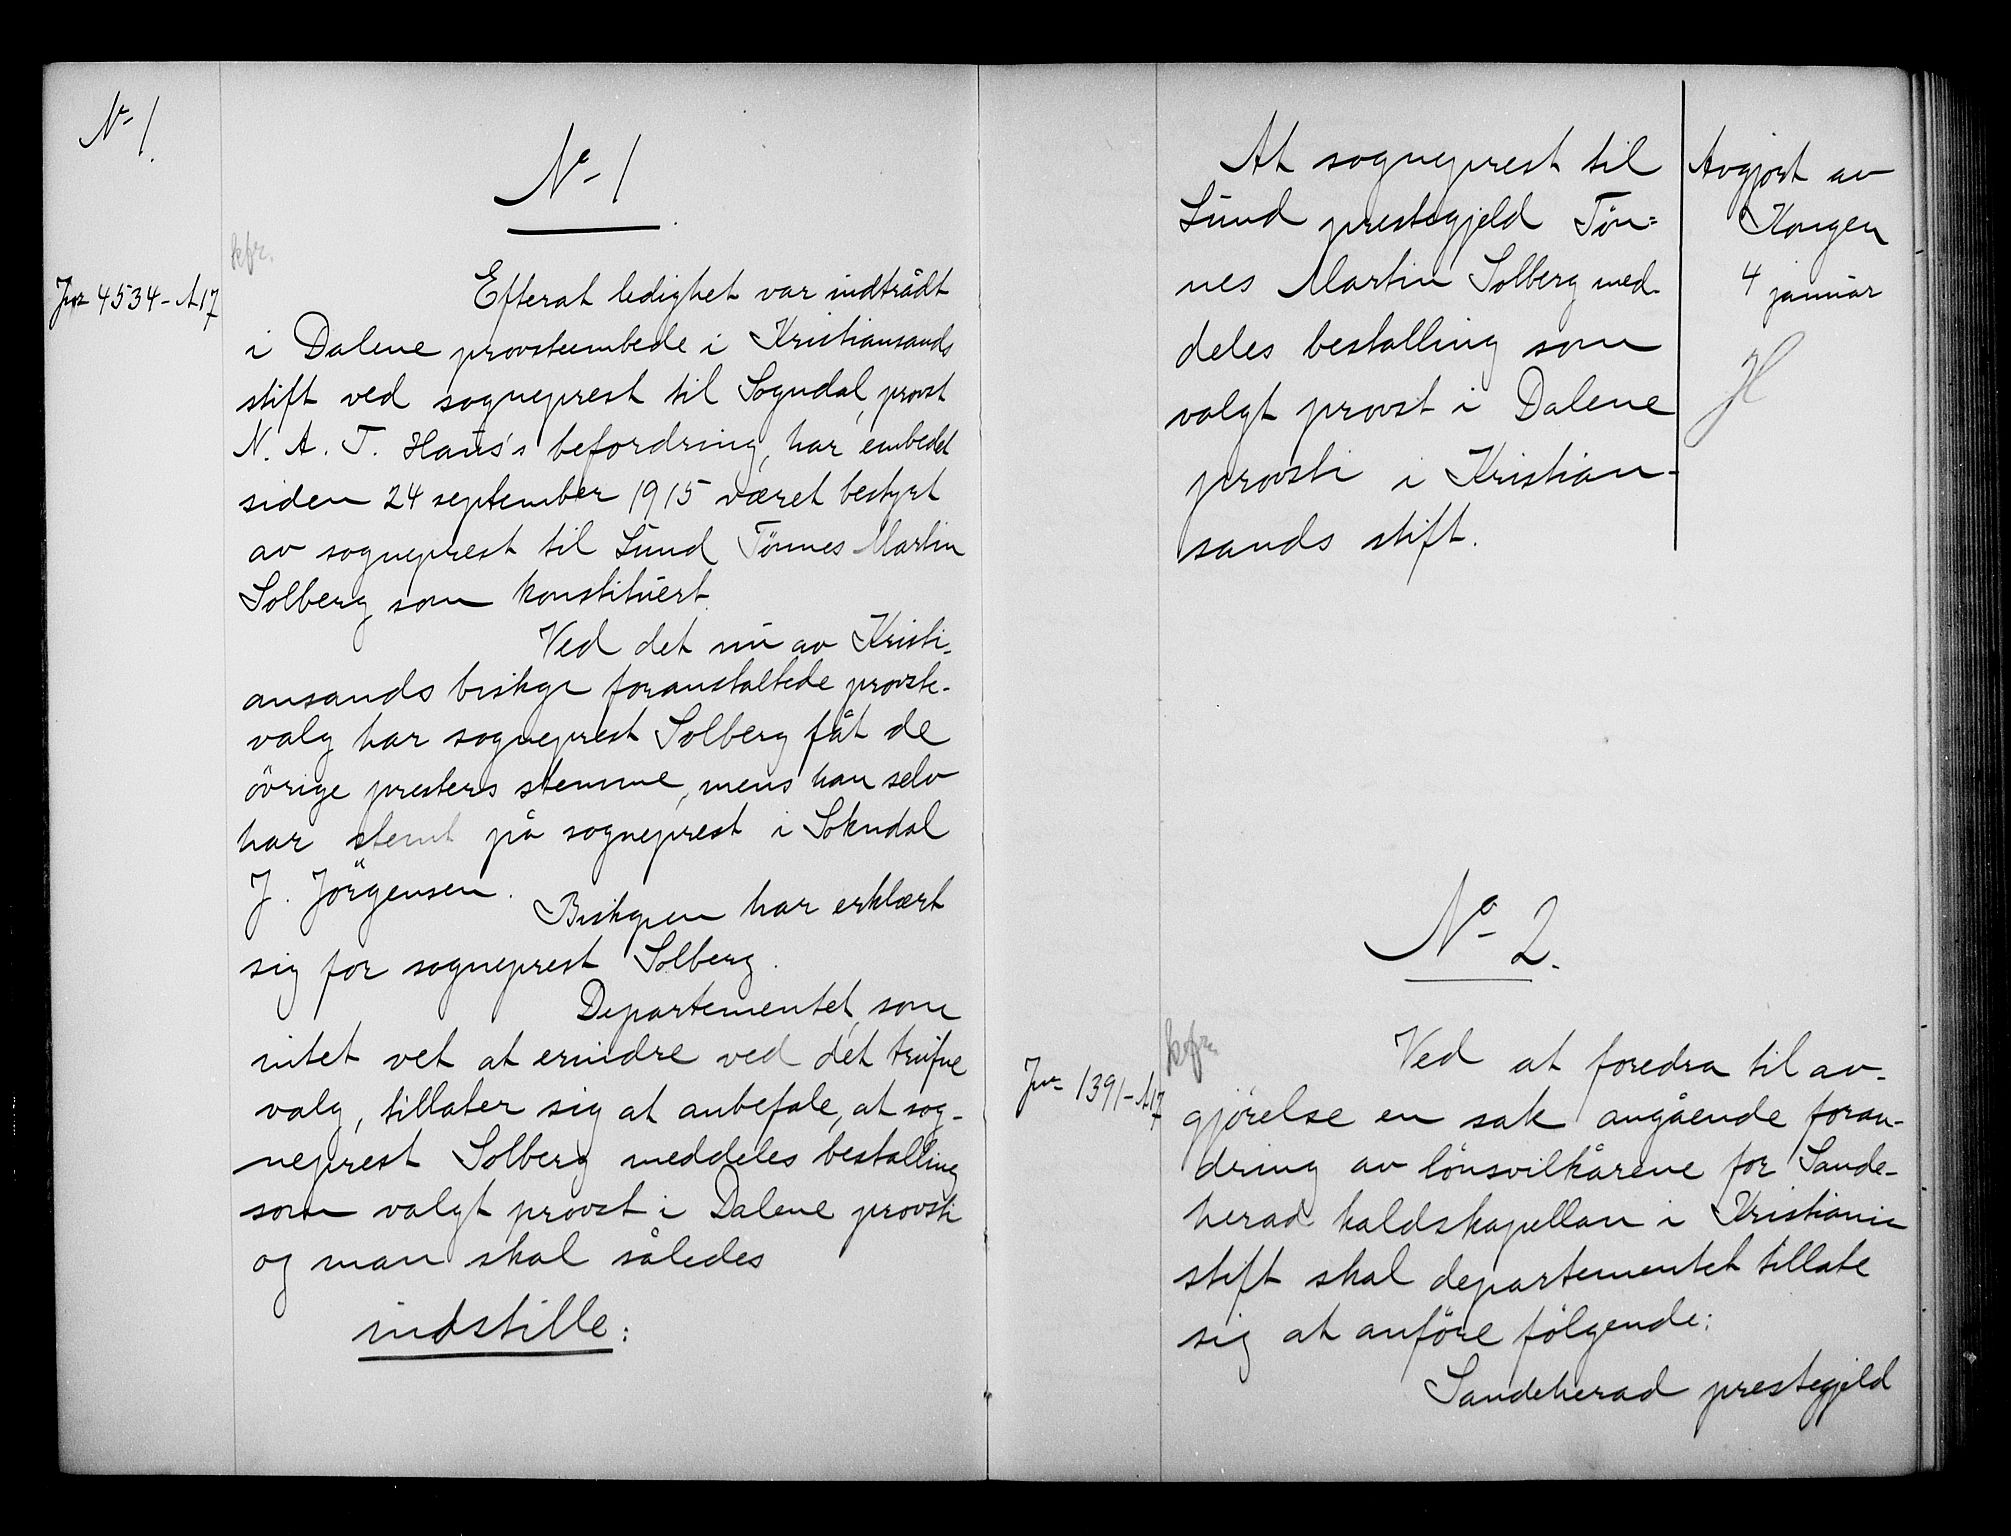 No 1.
No 1
kfr.
Jnr 4534-A17
Efterat ledighet var indtrådt
i Dalene provsteembede i Kristiansands
stift ved sogneprest til Sogndal, provst
N. A. T. Haus's befordring, har embedet
siden 24 september 1915 været bestyrt
av sogneprest til Lund Tönnes Martin
Solberg som konstituert.
Ved det nu av Kristi-
ansands biskop foranstaltede provste-
valg har sogneprest Solberg fåt de
övrige presters stemme, mens han selv
har stemt på sogneprest i Sokndal
J. Jörgensen.
Biskopen har erklært
sig for sogneprest Solberg.
Departementet, som
intet vet at erindre ved det trufne
valg, tillater sig at anbefale, at sog-
neprest Solberg meddeles bestalling
som valgt provst i Dalene provsti
og man skal således
indstille:
At sogneprest til
Lund prestegjeld Tön=
nes Martin Solberg med-
deles bestalling som
valgt provst i Dalene
provsti i Kristian-
sands stift.
Avgjort av
Kongen
4 januar
H
No 2.
kfr.
Jnr 1391-A17
Ved at foredra til av-
gjörelse en sak angående foran-
dring av lönsvilkårene for Sande-
herad kaldskapellan i Kristiania
stift skal departementet tillate
sig at anföre fölgende:
Sandeherad prestegjeld